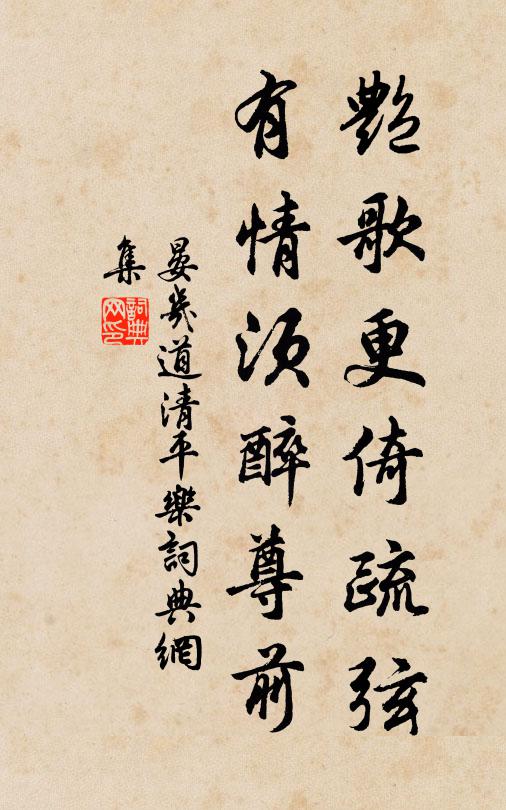 艷歌更倚疏弦
有情須醉尊前
晏幾道清平樂詞典網
集
詞典網印